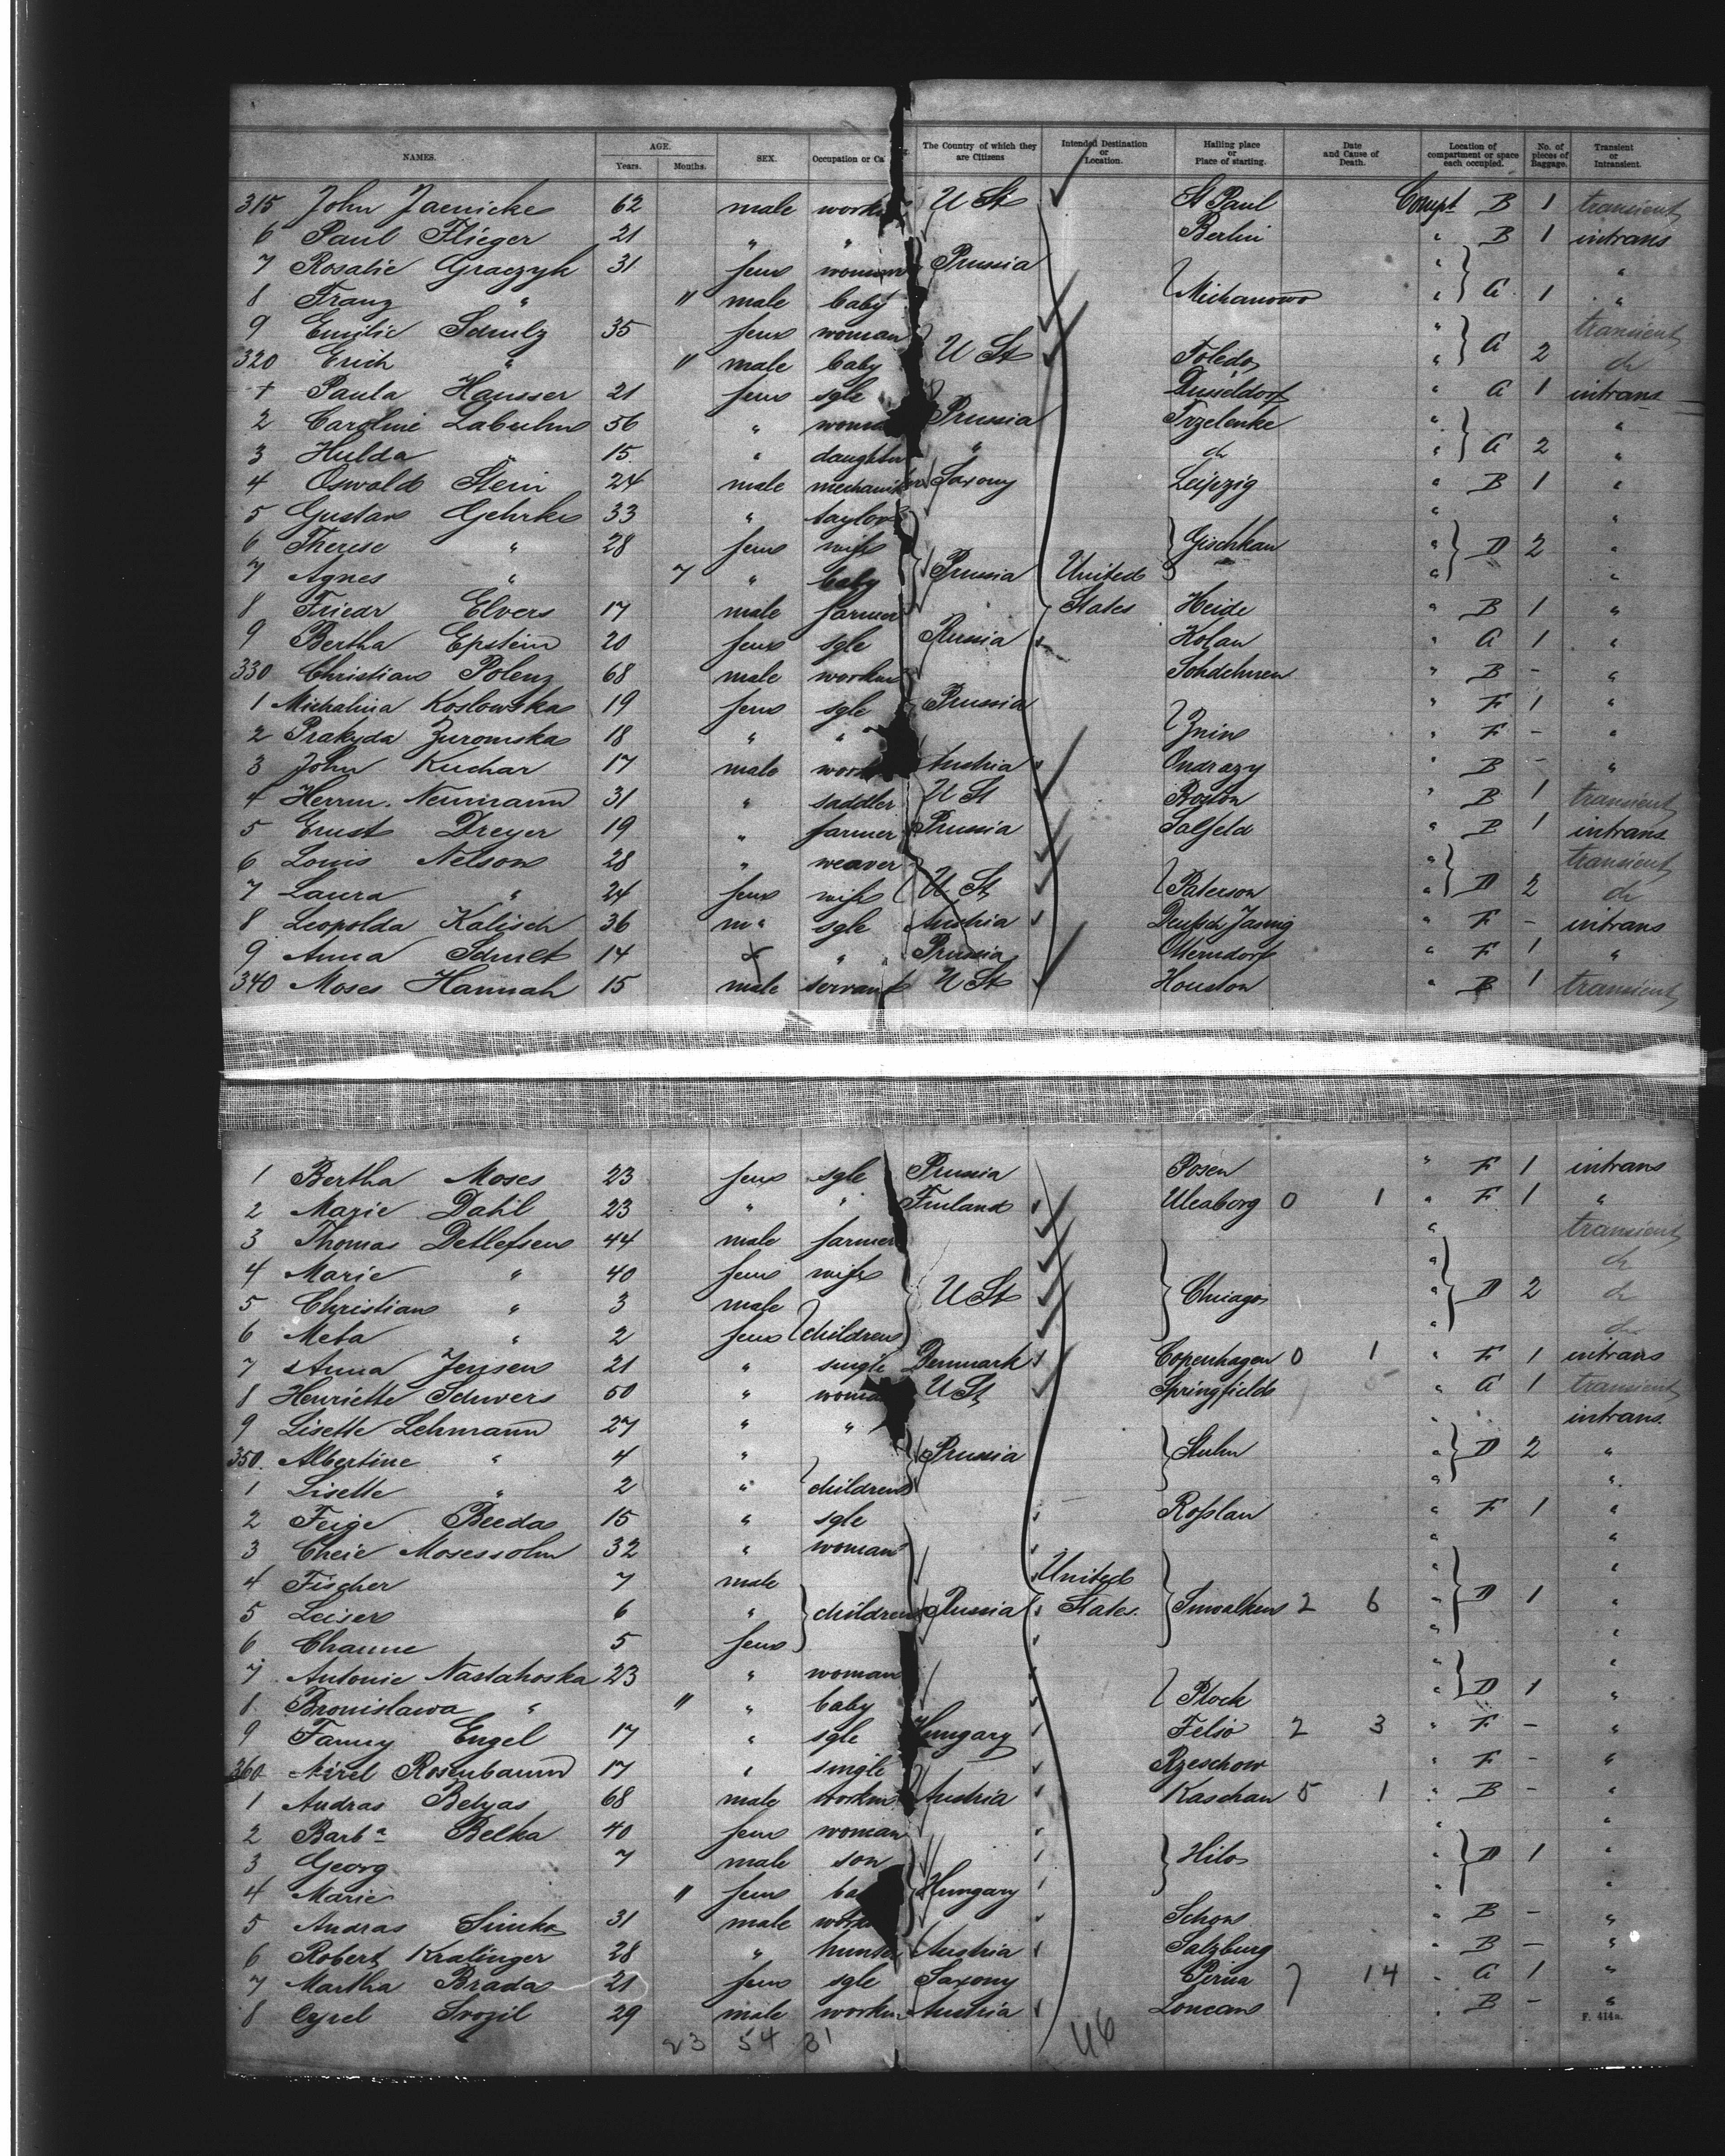 NAMES. AGE. Years. Months. SEX. Occupation or Ca The Country of which they are Citizens Intended Destination or Location. Hailing place or Place of starting. Date and Cause of Death. Location of compartment or space each occupied. No. of pieces of Baggage. Transient or Intransient.
315 John Jaenicke 62 male U St St Paul Compt B 1 transient
6 Paul Flieger 21 " " Berlin " B 1 intrans
7 Rosalie Graczyk 31 fem woman Prussia " "
8 Franz " 11 male baby Michanowo " A 1 "
9 Emilie Schulz 35 fem woman " transient
320 Erich " 11 male baby U St Toledo " A 2 do
+ Paula Hausser 21 fem sgle Dusseldorf " A 1 intrans
2 Caroline Labuhn 56 " Prussia Trzelenke " "
3 Hulda " 15 " daughter " do " A 2 "
4 Oswald Stein 24 male Saxony Leipzig " B 1 "
5 Gustav Gehrke 33 " taylor " "
6 Therese " 28 fem wife Gischkau " D 2 "
7 Agnes " 7 " baby Prussia United " "
8 Friedr Elvers 17 male farmer States Heide " B 1 "
9 Bertha Epstein 20 fem sgle Russia Kolan " A 1 "
330 Christian Polenz 68 male Sohdehnen " B - "
1 Michalina Koslowska 19 fem sgle Prussia " F 1 "
2 Prakyda Zuromska 18 " " Znin " F - "
3 John Kuchar 17 male Austria Ondrazy " B - "
4 Herrm. Neumann 31 " saddler U St Boston " B 1 transient
5 Ernst Dreyer 19 " farmer Prussia Salfeld " B 1 intrans
6 Louis Nelson 28 " weaver " transient
7 Laura " 24 fem wife U. St Paterson " D 2 do
8 Leopolda Kalisch 36 m " sgle Austria Deutsch Jasnig " F - intrans
9 Anna 14 " Prussia " F 1 "
340 Moses Hannah 15 male servant U St Houston " B 1 transient
1 Bertha Moses 23 fem sgle Prussia Posen " F 1 intrans
2 Marie Dahl 23 " " Finland Uleaborg 0 1 " F 1 "
3 Thomas Detlefsen 44 male farmer " transient
4 Marie " 40 fem wife " do
5 Christian " 3 male U St Chicago " D 2 do
6 Meta " 2 fem children " do
7 Anna Jensen 21 " single Denmark Copenhagen 0 1 " F 1 intrans
8 Henriette 50 " U St Springfield " A 1 transient
9 Lisette Lehmann 27 " " " intrans
350. Albertine " 4 " Prussia Stuhm " D 2 "
1 Lisette " 2 " children " "
2 Feige Beeda 15 " sgle Roßlau " F 1 "
3 Cheie Mosessohn 32 " woman " "
4 Fischer 7 male United " "
5 Leiser 6 " children Russia States. Suwalken 2 6 " D 1 "
6 Channe 5 fem " "
7 Antonie Nastahoska 23 " woman " "
8 Bronislawa " 11 " baby Plock " D 1 "
9 Fanny Engel 17 " sgle Hungary Felso 2 3 " F - "
360 Mirel Rosenbaum 17 " single Rzeschow " F - "
1 Andras Belyas 68 male Austria Kaschau 5 1 " B - "
2 Barba Belka 40 fem woman " "
3 Georg 7 male son Hilo " D 1 "
4 Marie 11 fem Hungary " "
5 Andras Simko 31 male Schons " B - "
6 Robert Kralinger 28 " Austria Salzburg " B - "
7 Martha Brada 21 fem sgle Saxony Pirna 7 14 " A 1 "
8 Cyrel Svozil 29 male Austria Loucan " B - "
F. 414a.
23 54 31 46